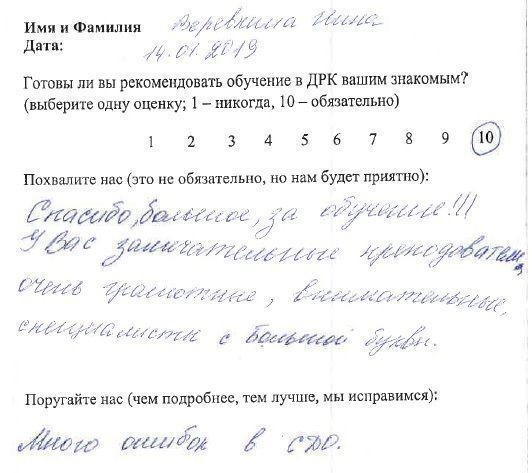 Имя и Фамилия Веревкина Нина
Дата: 14.01.2019
Готовы ли вы рекомендовать обучение в ДРК вашим знакомым?
(выберите одну оценку; 1 – никогда, 10 – обязательно)
1 2 3 4 5 6 7 8 9 10
Похвалите нас (это не обязательно, но нам будет приятно):
Спасибо, большое, за обучение!!!
У Вас замечательные преподаватели,
очень грамотные, внимательные,
специалисты с Большой буквы.
Поругайте нас (чем подробнее, тем лучше, мы исправимся):
Много ошибок в СДО.